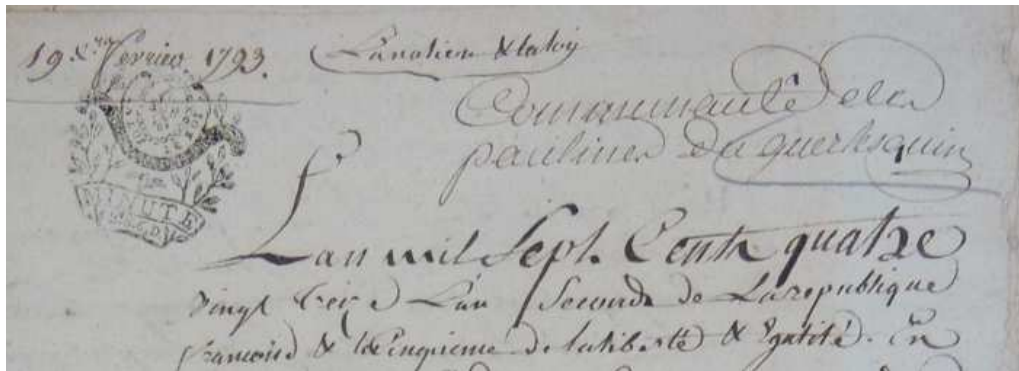 19 février 1793. La nation & la loy
Communauté de la
paulinen du guerlesquin
L'an mil Sept Cents quatre
vingt treize L'an Second de La republique
francoise & le Cinquieme de la liberté & Egalité. En
MINUTE